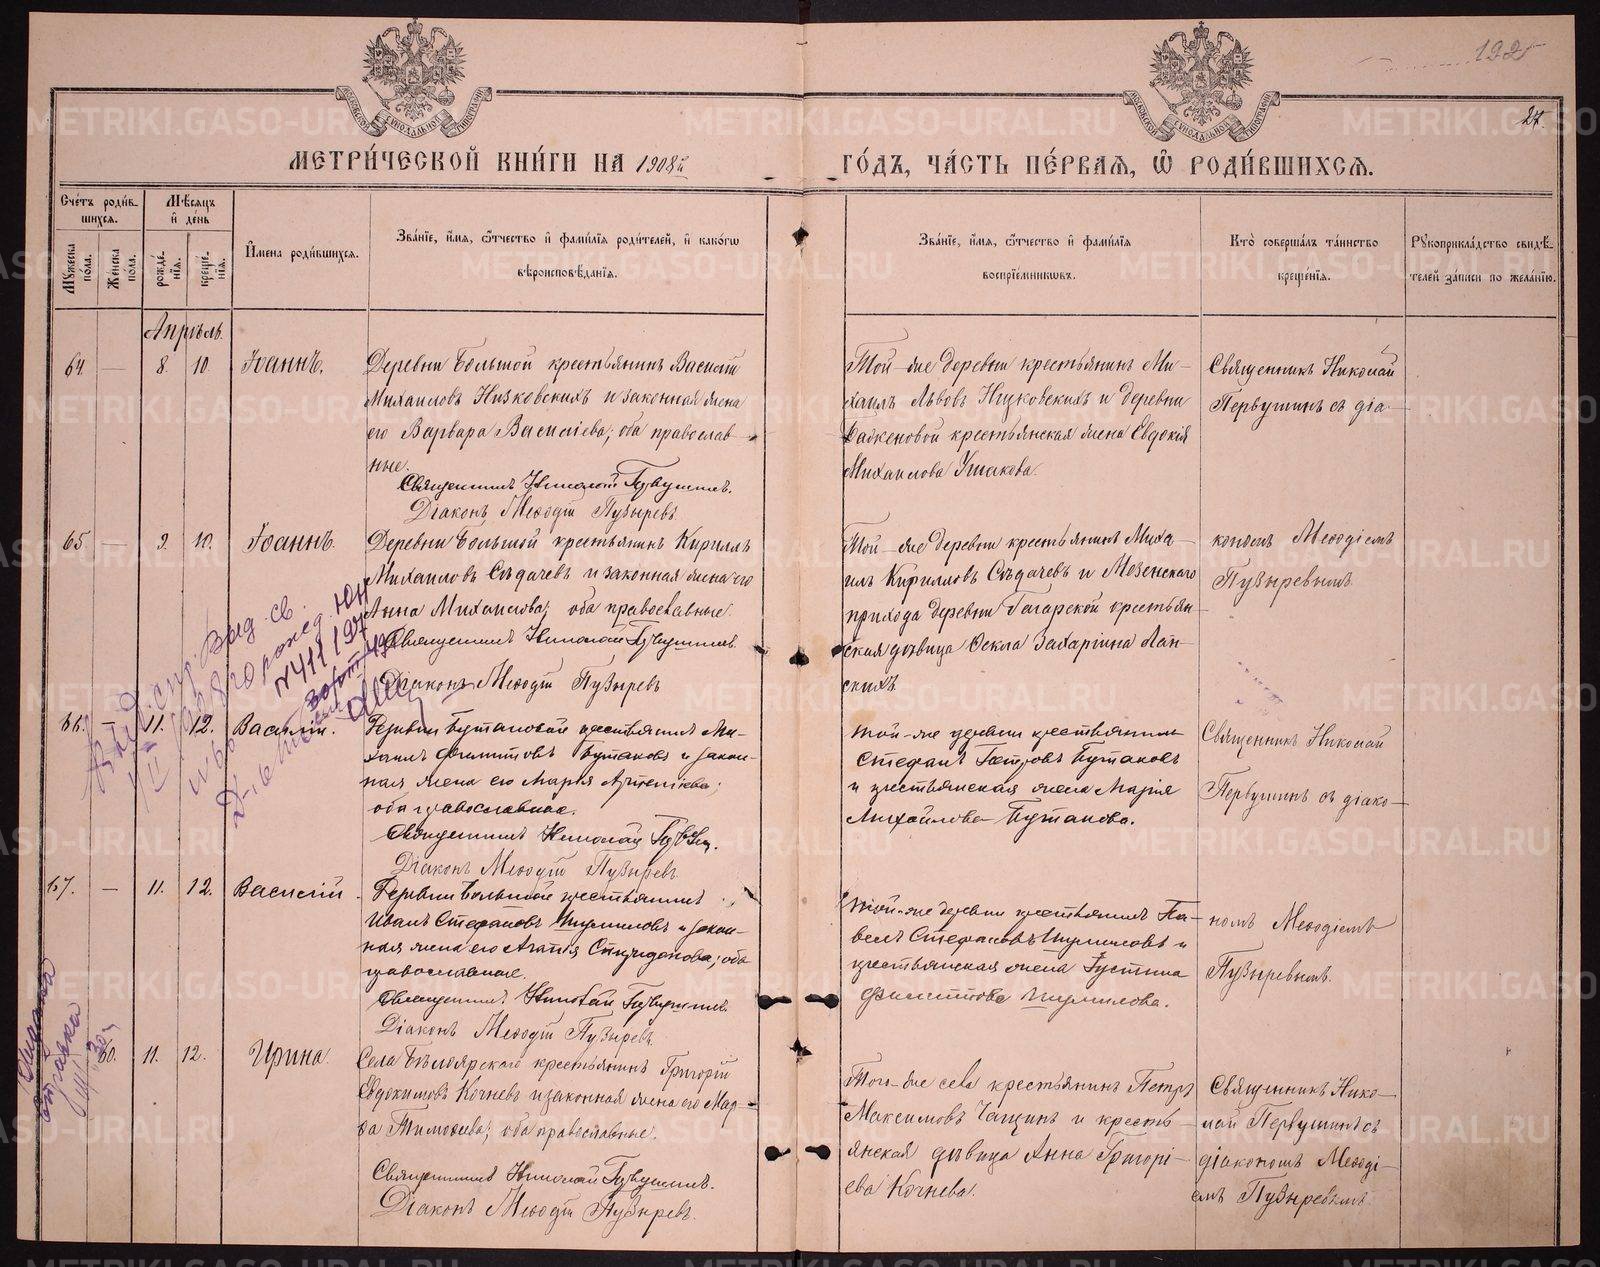 192
27.
МЕТРИ́ЧЕСКОЙ КНИ́ГИ НА 1908й
ГО́ДЪ, ЧА́СТЬ ПЕ́РВАЯ, Ѡ РОДИ́ВШИХСЯ.
Сче́тъ роди́в-
шихся.
Мѣ́сяцъ
и де́нь
Мꙋжеска пола.
Женска пола.
рожде́-
нїя.
креще́-
нїя.
И́мена роди́вшихся.
Зва́нїе, и́мя, ѻ́тчество и фами́лїя роди́телей, и како́гѡ
вѣроисповѣ́данїя.
Зва́нїе, и́мя, ѻ́тчество и фами́лїя
воспрїе́мникѡвъ.
Кто̀ соверша́лъ та́инство
креще́нїя.
Рꙋкоприкла́дство свидѣ́-
телей за́писи по жела́нїю.
Апрѣль.
64. — 8. 10. Іоаннъ.
Деревни Большой крестьянинъ Василій
Михаиловъ Низковскихъ и законная жена
его Варвара Василіева; оба православ-
ные.
Священникъ Николай Первушинъ.
Діаконъ Меѳодій Пузыревъ.
Той-же деревни крестьянинъ Ми-
хаилъ Львовъ Низковскихъ и деревни
крестьянская жена Евдокія
Михаилова Ушакова.
Священникъ Николай
Первушинъ съ діа-
65. — 9. 10. Іоаннъ.
Деревни Большой крестьянинъ Кириллъ
Михаиловъ Сѣдачевъ и законная жена его
Анна Михаилова; оба православные.
Священникъ Николай Первушинъ.
Діаконъ Меѳодій Пузыревъ
Той-же деревни крестьянинъ Миха-
илъ Кирилловъ Сѣдачевъ и Мезенскаго
прихода деревни Гагарской крестьян-
ская дѣвица Ѳекла Захаріина Лан-
скихъ
кономъ Меѳодіемъ
Пузыревымъ.
66. — 11. 12. Василій.
Деревни Бутаковой крестьянинъ Ми-
хаилъ Филипповъ Бутаковъ и закон-
ная жена его Марія
оба православные.
Священникъ Николай
Діаконъ Меѳодій Пузыревъ.
Той-же деревни крестьянинъ
Стефанъ Петровъ Бутаковъ
и крестьянская жена Марія
Михайлова Бутакова.
Священникъ Николай
Первушинъ съ діако-
67. — 11. 12. Василій.
Деревни Большой крестьянинъ
Иванъ Стефановъ Шумиловъ и закон-
ная жена его Агапія Спиридонова; оба
православные.
Священникъ Николай Первушинъ.
Діаконъ Меѳодій Пузыревъ.
Той-же деревни крестьянинъ Па-
велъ Стефановъ Шумиловъ и
крестьянская жена Іустина
Филиппова Шумилова.
номъ Меѳодіемъ
Пузыревымъ.
60. 11. 12. Ирина.
Села Бѣлоярскаго крестьянинъ Григорій
Евдокимовъ Кочневъ и законная жена его Мар-
ѳа Тимоѳеева; оба православные.
Священникъ Николай Первушинъ.
Діаконъ Меѳодій Пузыревъ.
Того-же села крестьянинъ Петръ
Максимовъ Чащинъ и кресть-
янская дѣвица Анна Григорі-
ева Кочнева.
Священникъ Нико-
лай Первушинъ съ
діакономъ Меѳоді-
емъ Пузыревымъ.
Выд. св.
рожд.
N 411197
Выдана
справка
METRIKI.GASO-URAL.RU